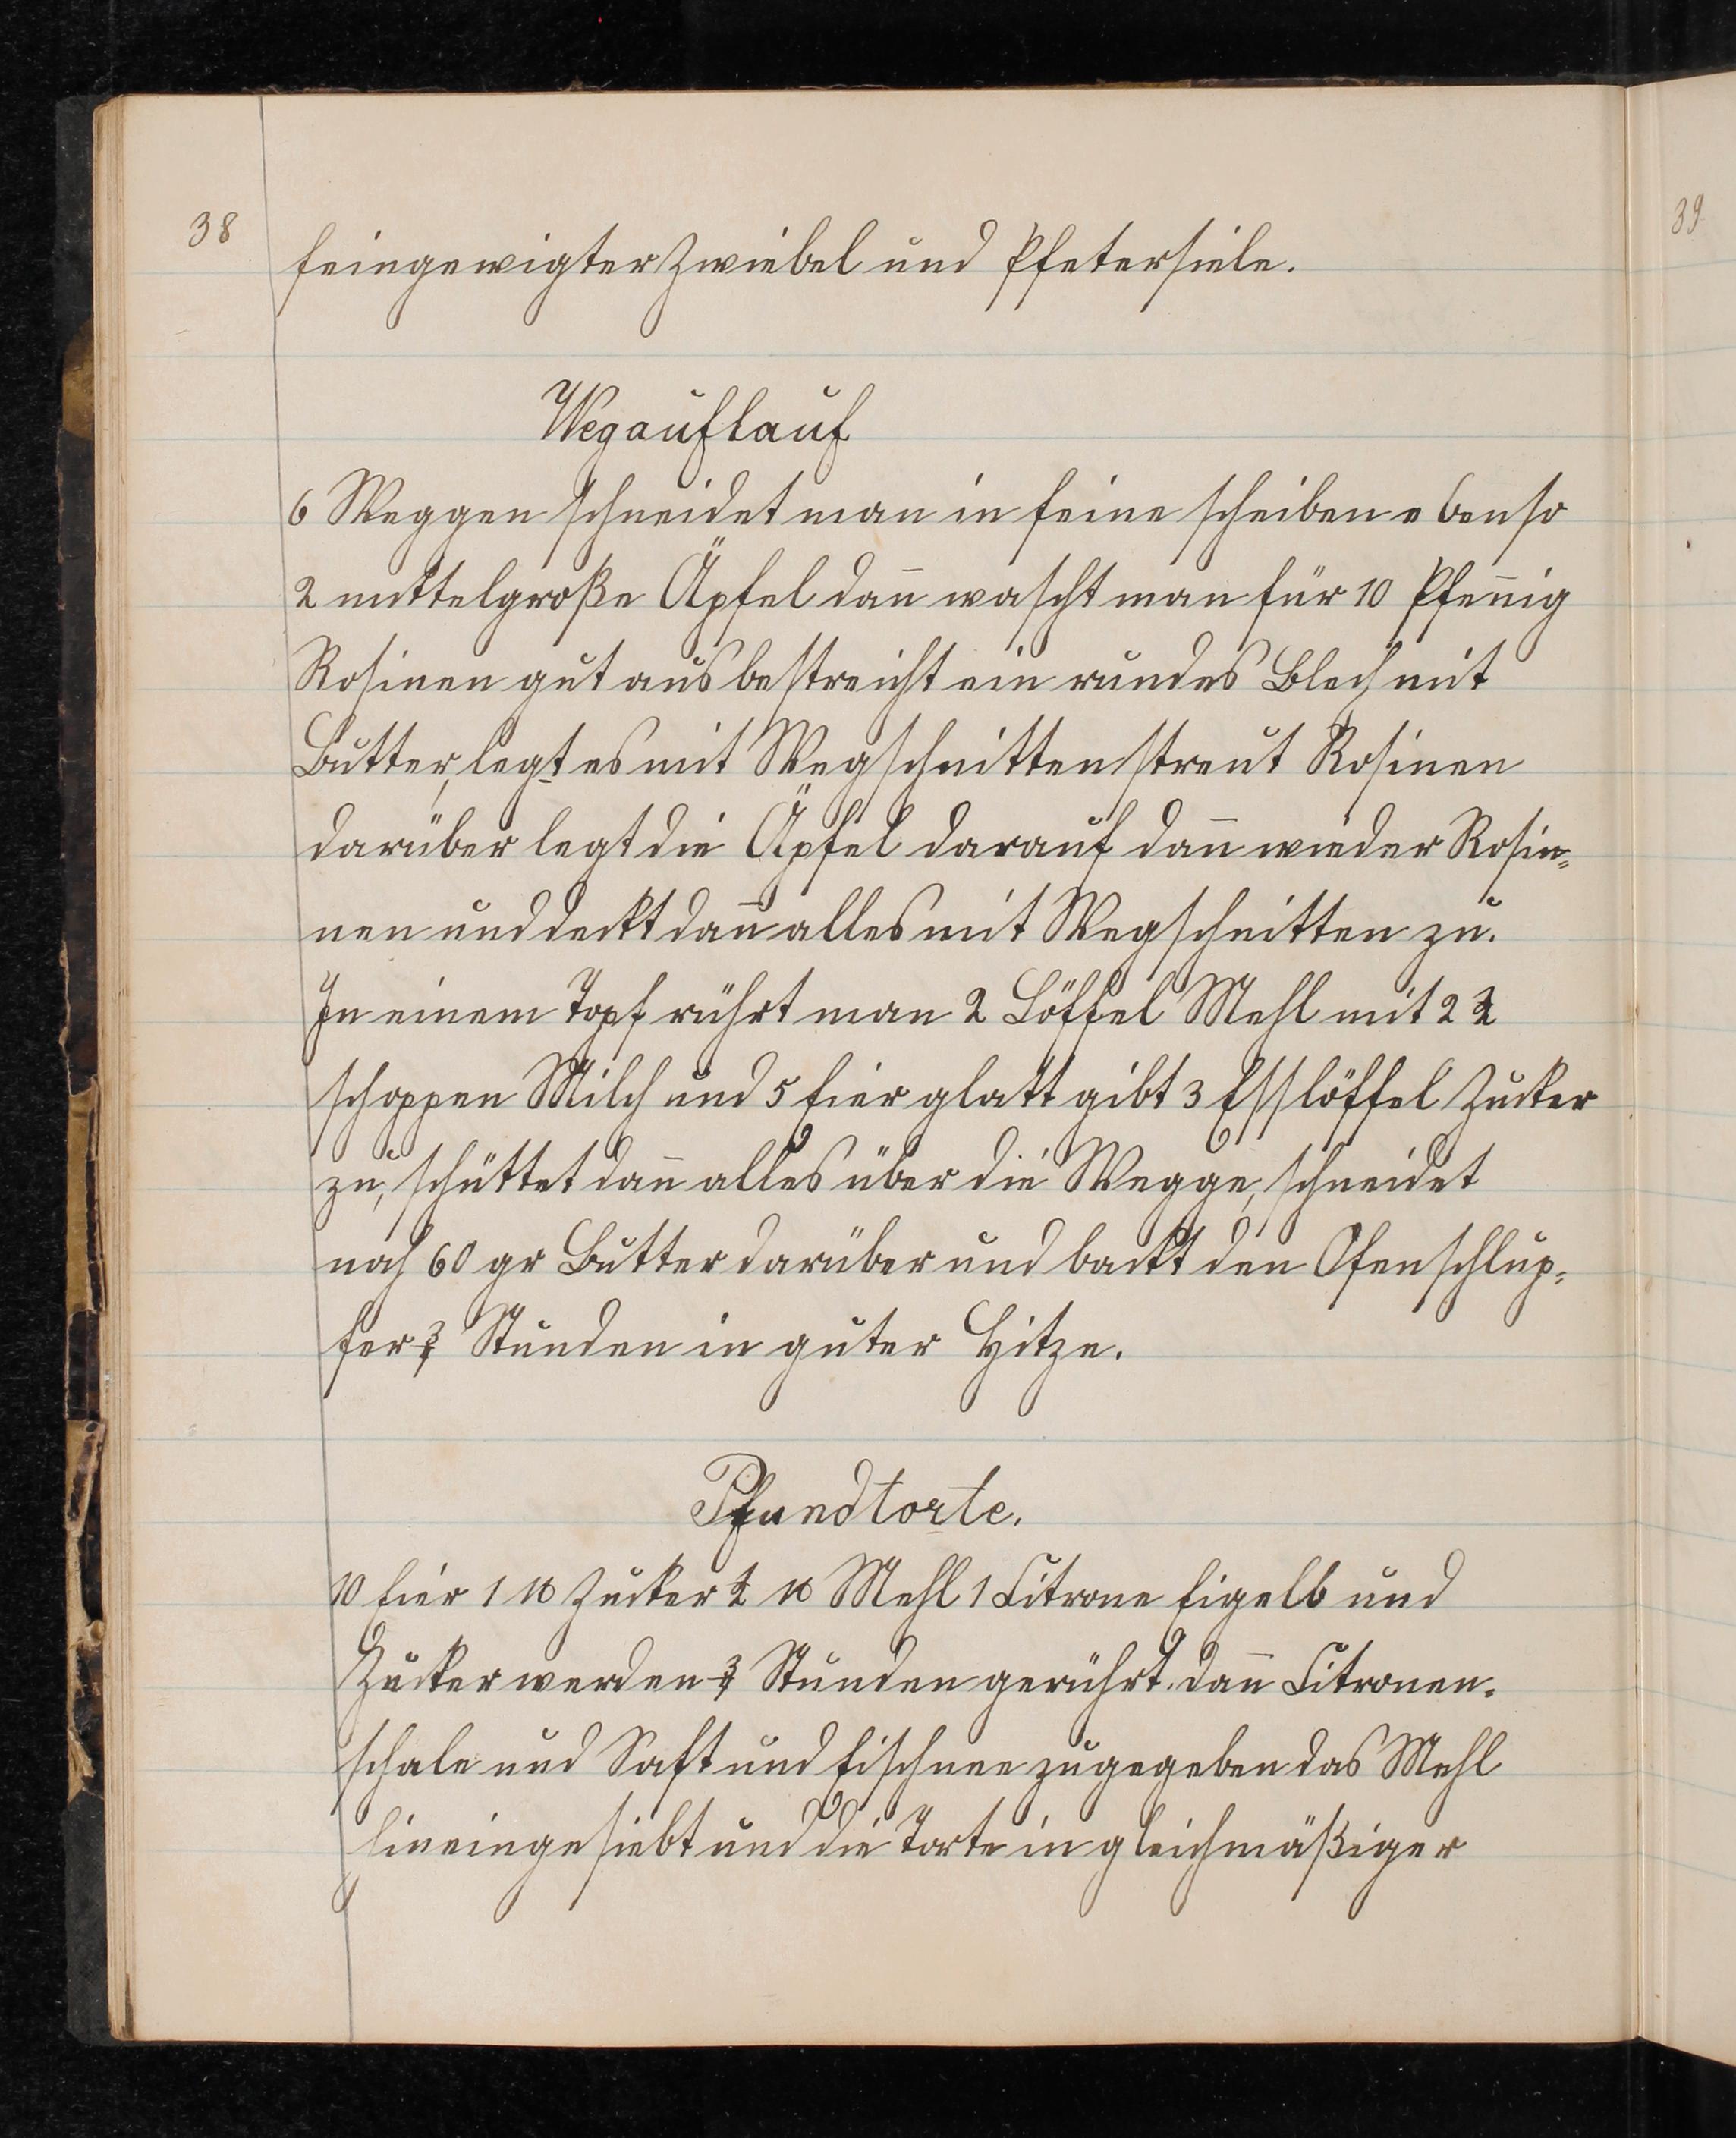 38
feingewigter Zwiebel und Pfetersiele.
Wegauflauf
6 Weggen schneidet man in feine scheiben ebenso
2 mittelgroße Äpfel dan̄ wascht man für 10 Pfen̄ig
Rosinen gut aus bestreicht ein rundes Blech mit
Butter, legt es mit Wegschnitten streut Rosinen
darüber legt die Äpfel darauf dan̄ wieder Rosin=
nen und deckt dan̄ alles mit Wegschnitten zu.
In einem Topf rührt man 2 Löffel Mehl mit 2 ½
schoppen Milch und 5 Eier glatt gibt 3 Esslöffel Zucker
zu, schüttet dan̄ alles über die Wegge, schneidet
noch 60 gr Butter darüber und backt den Ofenschlup=
fer ¾ Stunden in guter Hitze.
Pfundtorte.
10 Eier 1 ℔ Zucker ½ ℔ Mehl 1 Citrone Eigelb und
Zucker werden ¾ Stunden gerührt. dan̄ Citronen=
schale und Saft und Eischnee zugegeben das Mehl
hineingesiebt und die Torte in gleichmäßiger
39